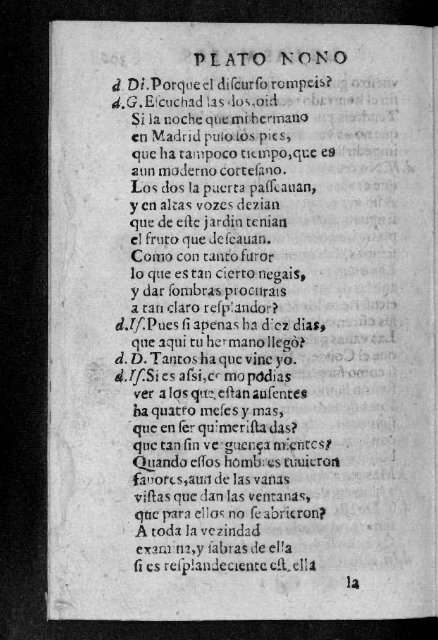 PLATO NONO
d. Di. Porque el discurso rompeis?
d. G. Escuchad las dos, oid
Si la noche que mi hermano
en Madrid puso los pies,
que ha tampoco tiempo, que es
aun moderno cortesano.
Los dos la puerta passeauan,
y en altas vozes dezian
que de este jardin tenian
el fruto que deseauan.
Como con tanto furor
lo que es tan cierto negais,
y dar sombras procurais
a tan claro resplandor?
d. Is. Pues si apenas ha diez dias,
que aqui tu hermano llegò?
d. D. Tantos ha que vine yo.
d. Is. Si es assi, como podias
ver a los que estan ausentes
ha quatro meses y mas,
que en ser quimerista das?
que tan sin verguença mientes?
Quando essos hombres tuuieron
fauores, aun de las vanas
vistas que dan las ventanas,
que para ellos no se abrieron?
A toda la vezindad
examina, y sabras de ella
si es resplandeciente estella
la